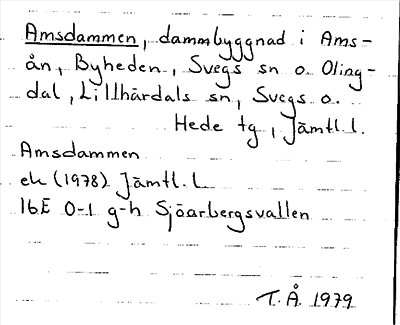 Amsdammen, dammbyggnad i Ams-
ån, Byheden, Svegs sn o. Oling-
dal, Lillhärdals sn, Svegs o.
Hede tg, Jämtl. l.
Amsdammen
ek (1978) Jämtl. l
16E 0-1 g-h Sjöarbergsvallen
T.Å. 1979